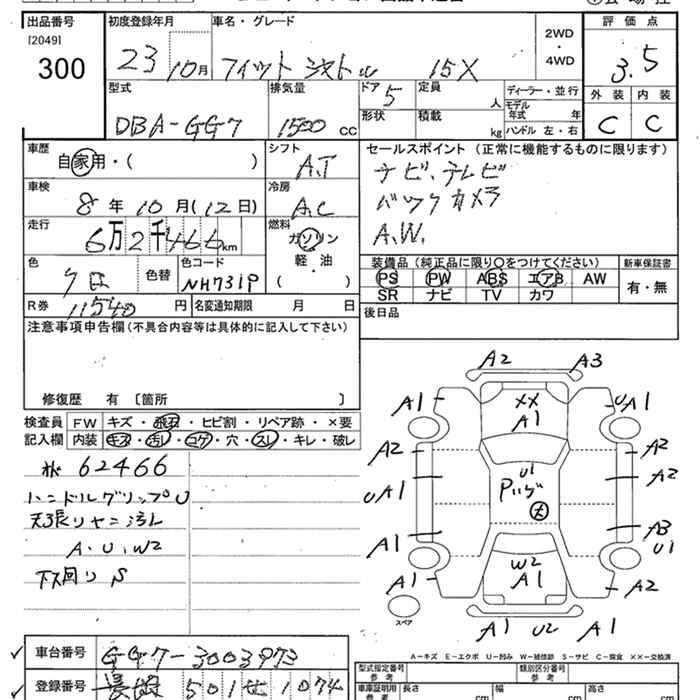 出品番号
[2049]
300
初度登録年月
23 10月
車名・グレード
フィットシャトル 15X
2WD
・
4WD
評価点
3.5
型式
DBA-GG7
排気量
1500 CC
ドア 5
形状
定員 人
積載 kg
ディーラー・並行
モデル年式 年
ハンドル 左・右
外装 内装
C C
車歴
自家用・( )
シフト
A.T
セールスポイント (正常に機能するものに限ります)
ナビ、テレビ
バックカメラ
A.W.
車検
8年10月(12日)
冷房
A.C
走行
6万2千466km
燃料
ガソリン
軽・油
( )
色
クロ
色替
色コード
NH731P
装備品 (純正品に限り○をつけてください)
PS PW ABS エアB AW
SR ナビ TV カワ
新車保証書
有・無
R券 11540円
名変通知期限 月 日
後日品
注意事項申告欄(不具合内容等は具体的に記入して下さい)
修復歴 有 〔箇所 〕
検査員記入欄
FW キズ・飛石・ヒビ割・リペア跡・×要
内装 キズ・汚レ・コゲ・穴・スレ・キレ・破レ
62466
ハンドルグリップU
天張りヤニ汚レ
A.U.W2
下回りS
A2 A3
A1 XX A1 UA1
A2 A2
UA1 U1 A2
Pルーフ
A1 A3 U1
A1 W2 A1 A2
スペア
A1 U2 A1
A-キズ E-エクボ U-凹み W-補修跡 S-サビ C-腐食 ××-交換済
車台番号 GG7-3003973
登録番号 501せ1074
型式指定番号 参考
類別区分番号 参考
車庫証明用 参考
長さ cm
幅 cm
高さ cm